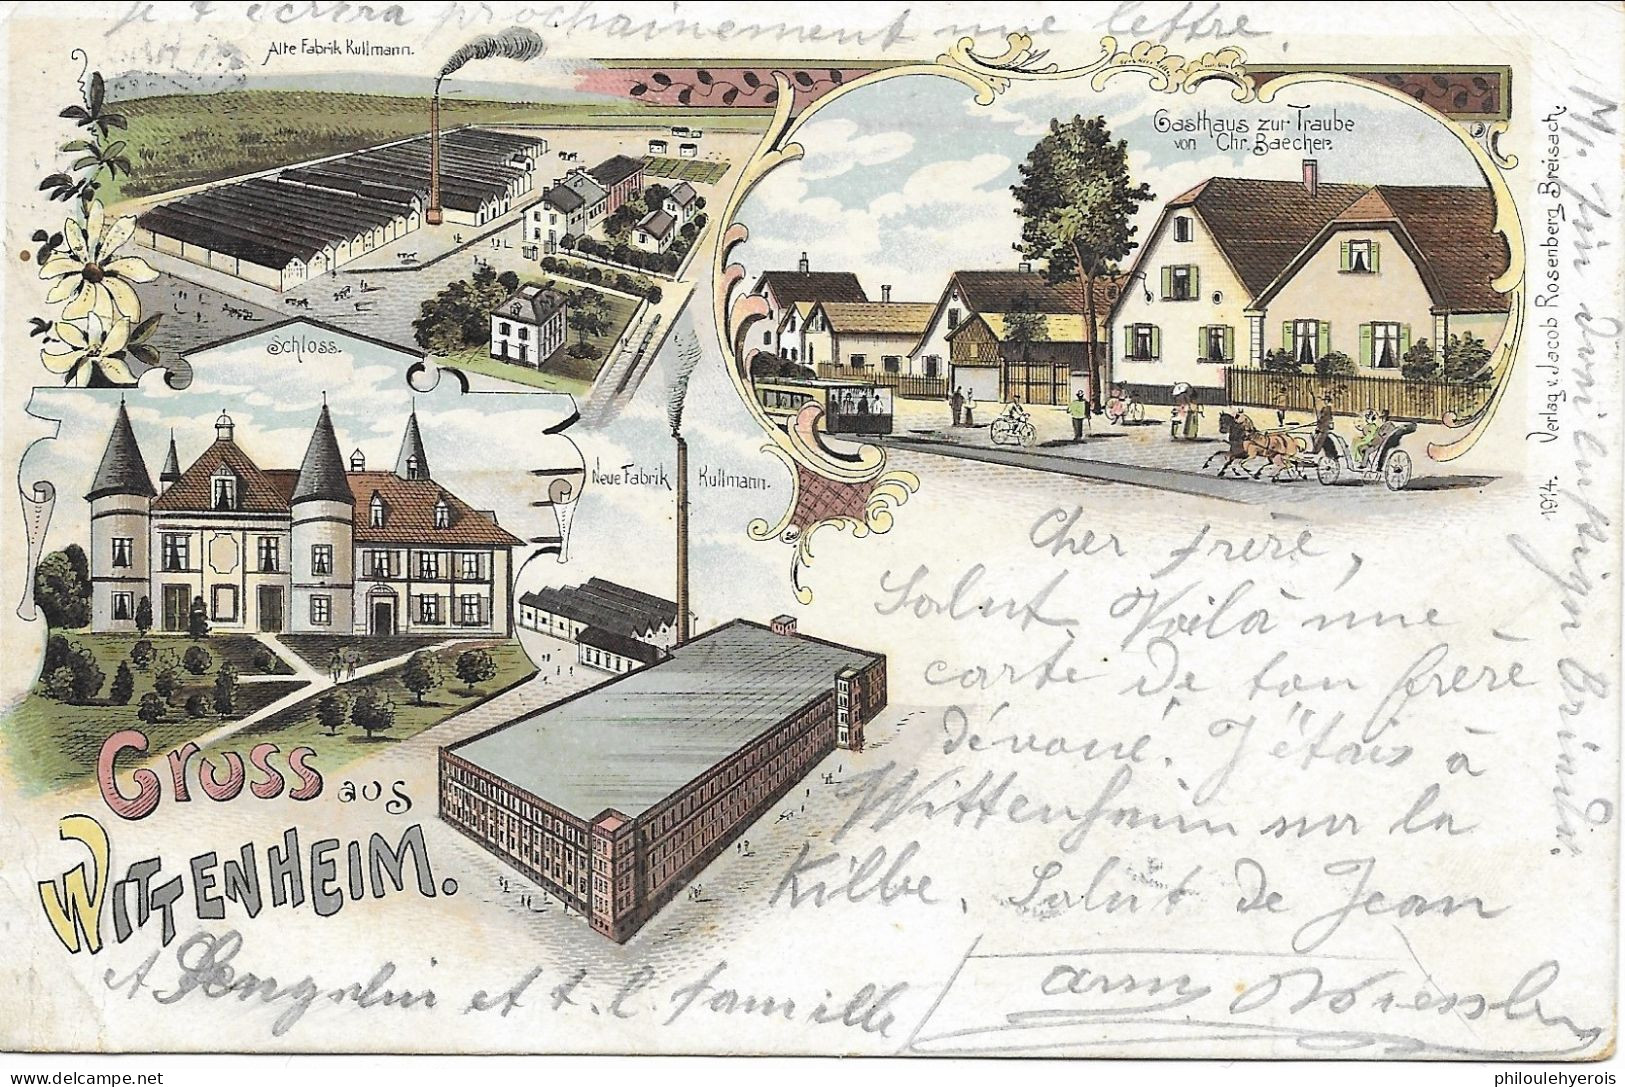 je t'écrira prochainement une lettre.
Alte Fabrik Kullmann.
Gasthaus zur Traube
von Chr. Baecher.
Schloss.
Neue Fabrik Kullmann.
Gruss aus
Wittenheim.
1974. Verlag v. Jacob Rosenberg, Breisach.
Cher frère,
Salut Voilà une
carte de ton frère
dévoué. J'étais à
Wittenheim sur la
Kilbe. Salut de Jean
et t. l. famille
philoulehyerois